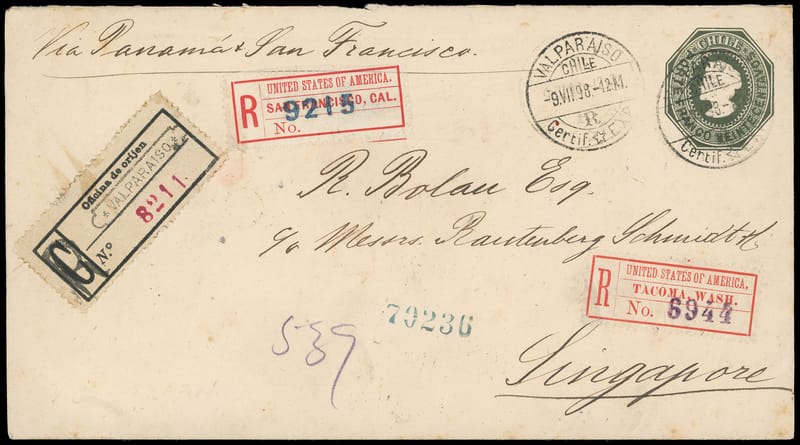 Via Panamá & San Francisco.
VALPARAISO
CHILE
-9.VII.98-12M.
R
Certif.
CHILE
UNITED STATES OF AMERICA.
R SAN FRANCISCO, CAL.
No. 9215
Oficina de orijen
VALPARAISO
C Nº 8211
R. Bolau Esq.
c/o Messrs. Rautenberg Schmidt &
UNITED STATES OF AMERICA,
R TACOMA, WASH.
No. 6944
79236
539
Singapore